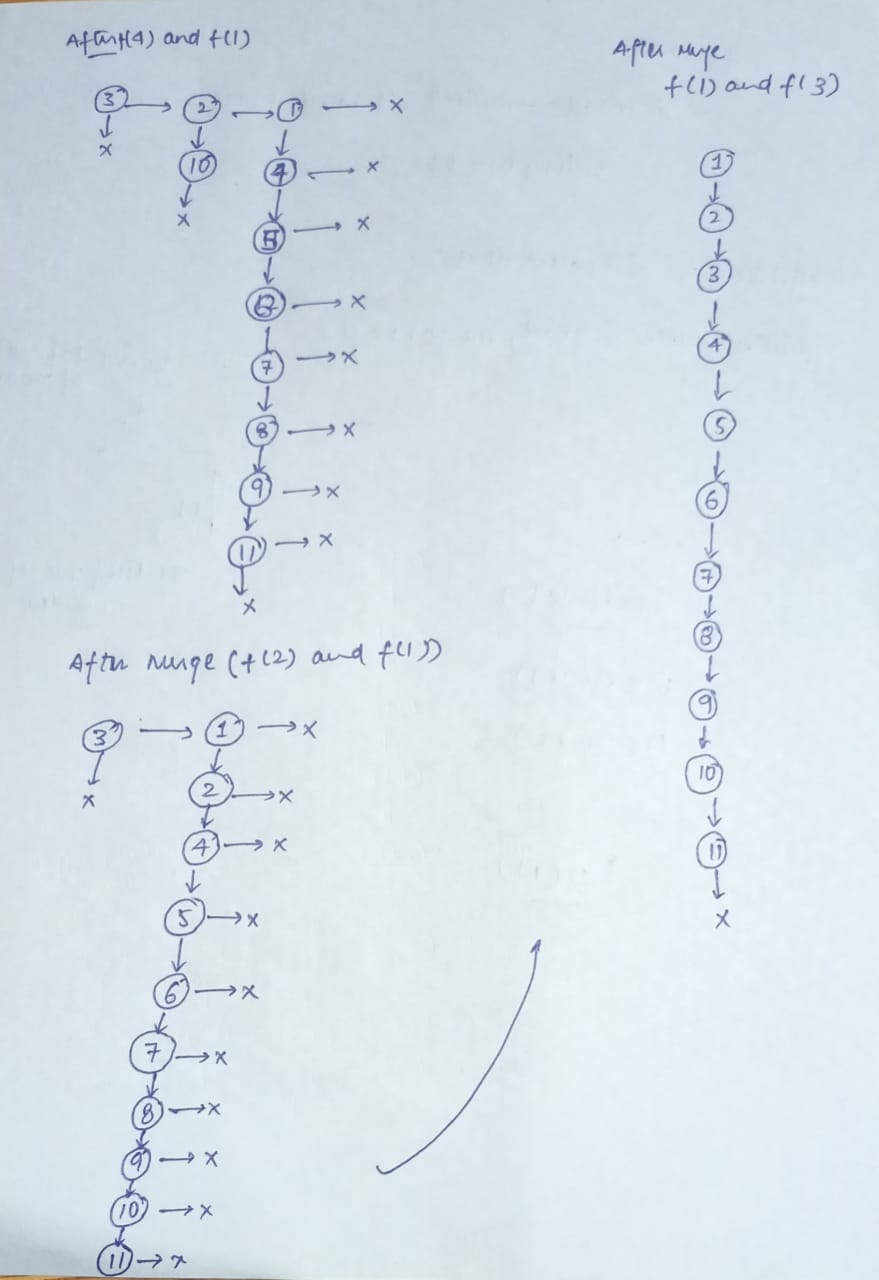 After f(4) and f(1)
3 → 2 → 1 → x
↓ ↓ ↓
x 10 4 → x
↓ ↓
x 5 → x
↓
→ x
↓
7 → x
↓
8 → x
↓
9 → x
↓
11 → x
↓
x
After merge (f(2) and f(1))
3 → 1 → x
↓ ↓
x 2 → x
↓
4 → x
↓
5 → x
↓
6 → x
↓
7 → x
↓
8 → x
↓
9 → x
↓
10 → x
↓
11 → x
After merge
f(1) and f(3)
1
↓
2
↓
3
↓
4
↓
5
↓
6
↓
7
↓
8
↓
9
↓
10
↓
11
↓
x